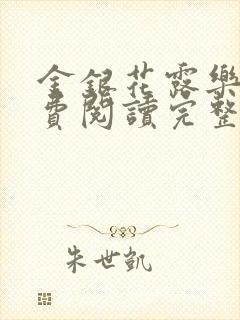 金銀花露樂
費閱讀完整
朱世凱